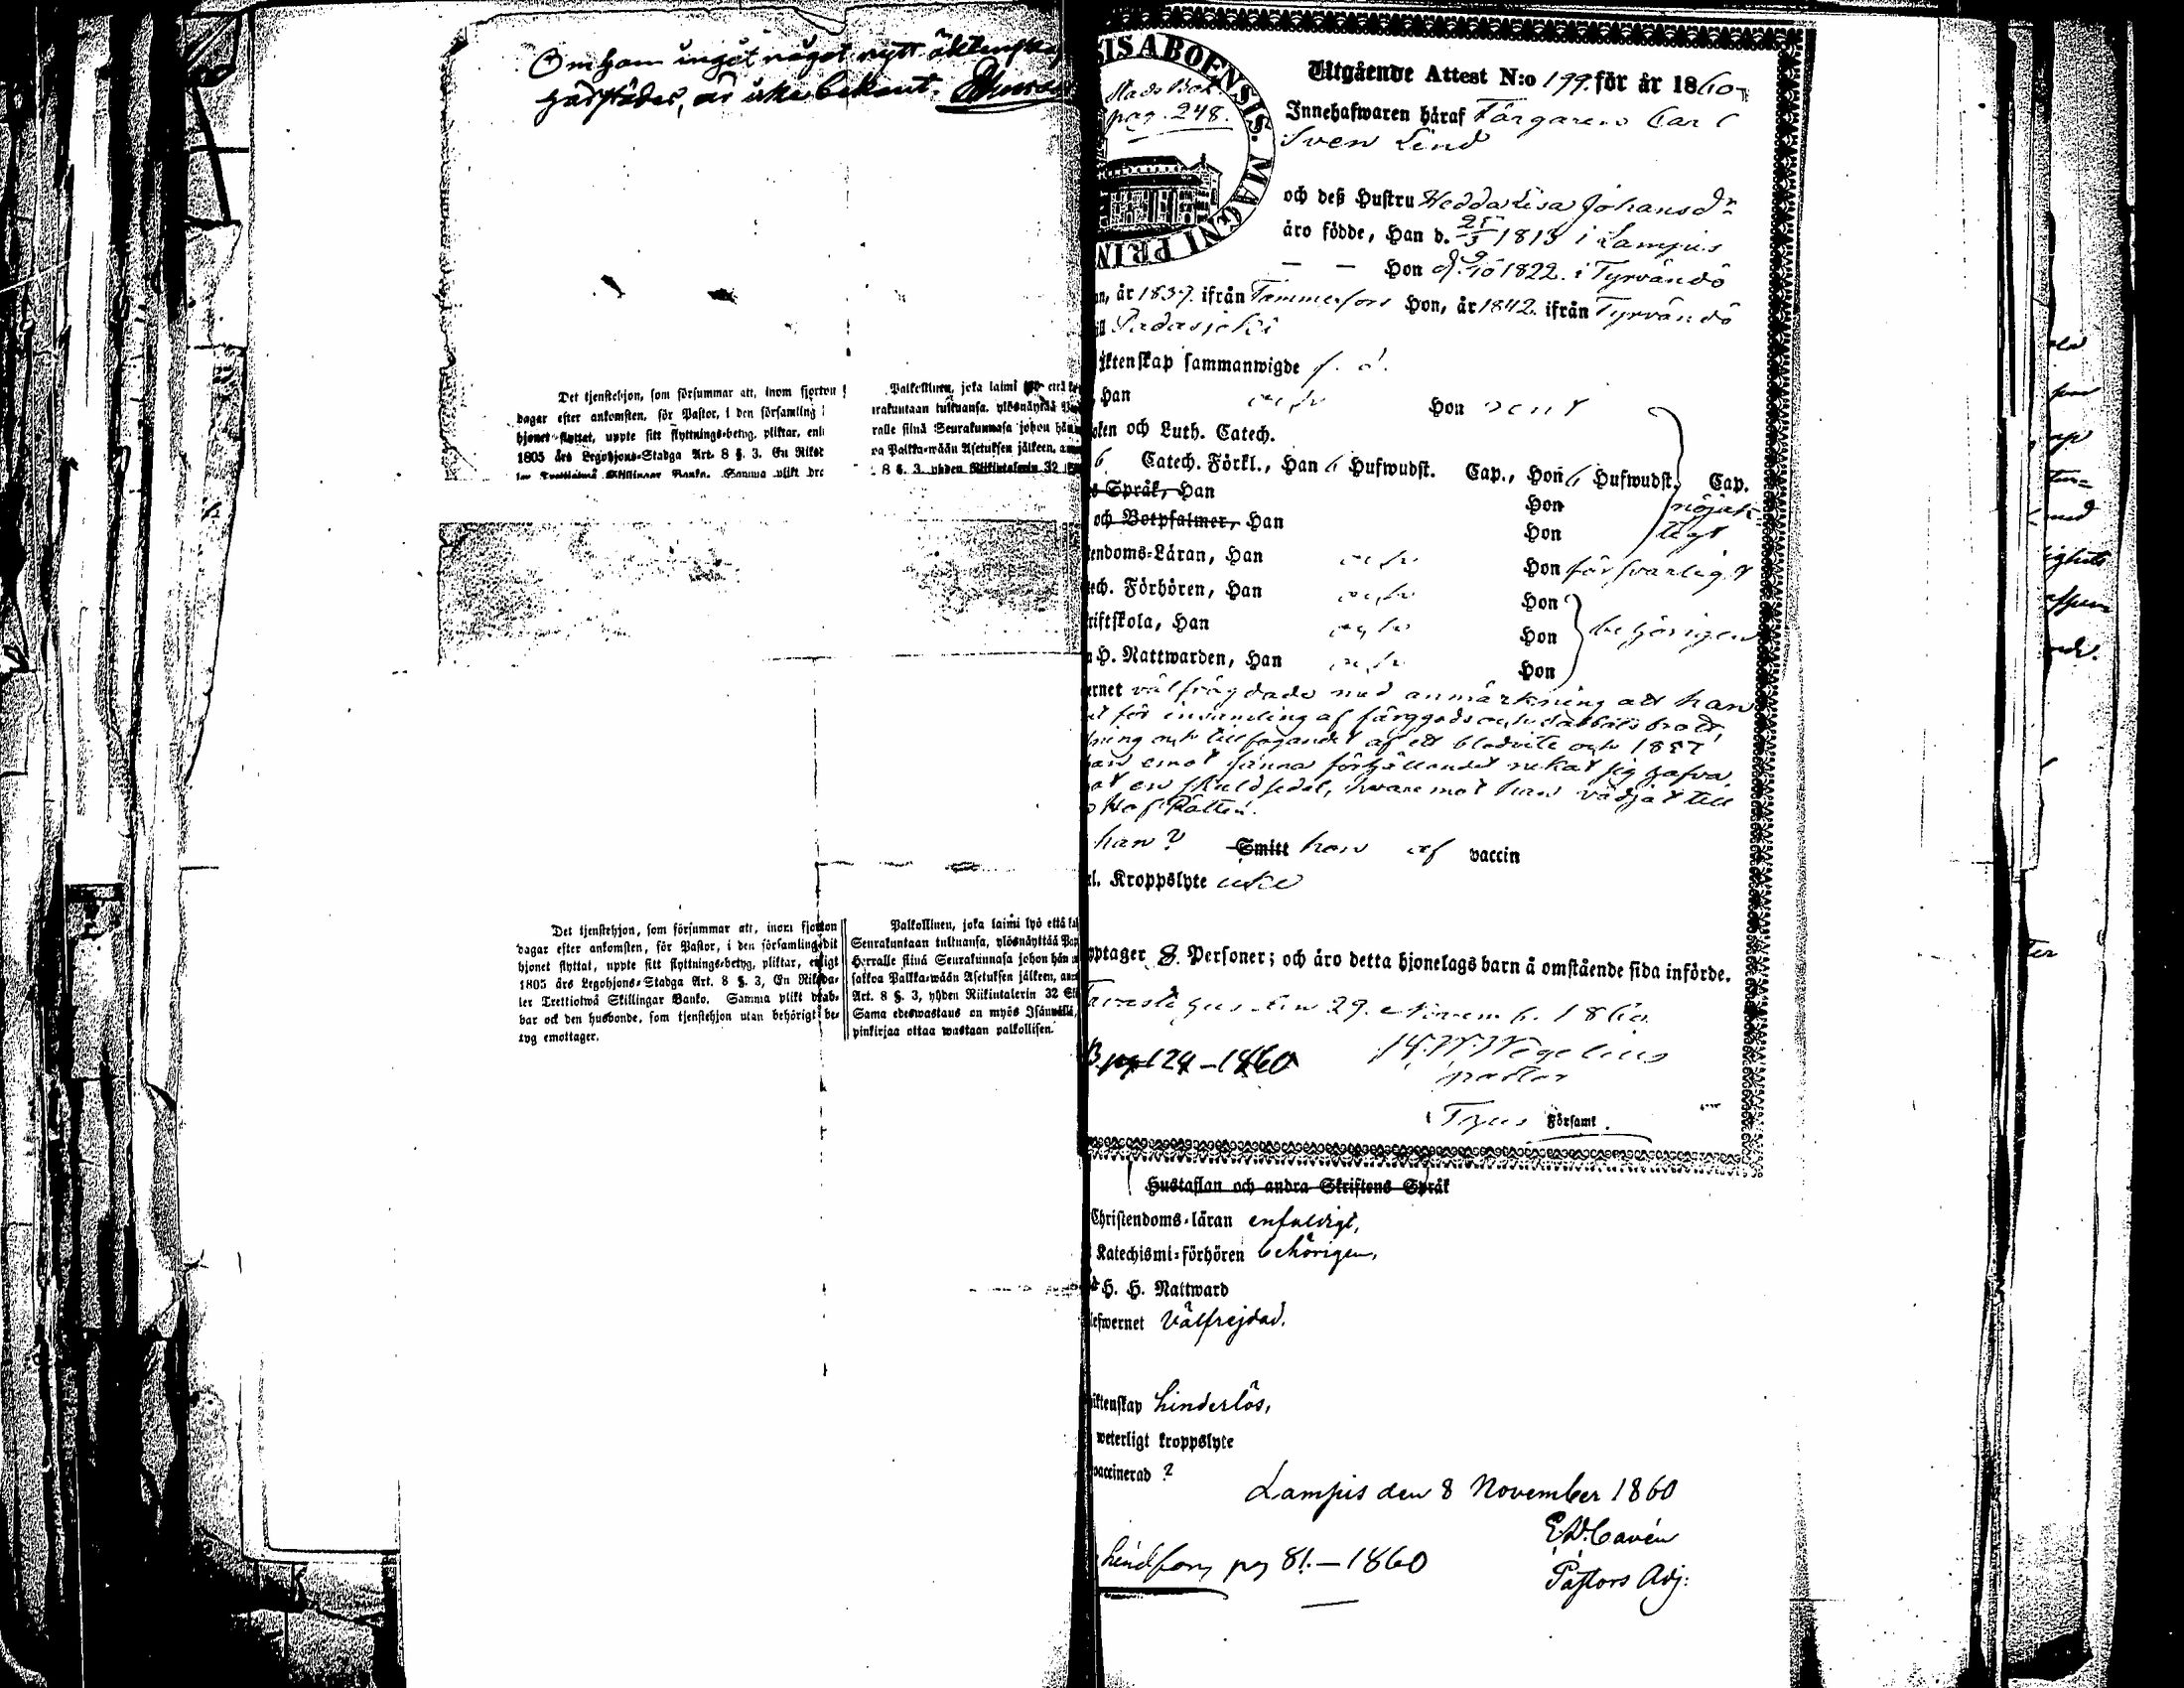 Om ham ingåt något nytt äktenskap
härstädes, är icke bekant.
Det tjenstehjon, som försummar att, inom fjorton
dagar efter ankomsten, för Pastor, i den församling
hjonet flyttat, uppte sitt flyttnings-betyg, pliktar, enli
1805 års Legohjons-Stadga Art. 8 §. 3. En Riksd
ler Trettiotwå Skillingar Banko. Samma plikt dra
Palkollinen, joka laimi lyö että
urakuntaan tultuansa, ylösnäyttää
ralle siinä Seurakunnasa johon hän
va Palkka-wään Asetuksen jälkeen,
8 §. 3. yhden Riikintalerin 32
Det tjenstehjon, som försummar att, inom fjorton
dagar efter ankomsten, för Pastor, i den församling dit
hjonet flyttat, uppte sitt flyttnings-betyg, pliktar, enligt
1805 års Legohjons-Stadga Art. 8 §. 3, En Riksda-
ler Trettiotwå Skillingar Banko. Samma plikt drab-
bar ock den husbonde, som tjenstehjon utan behörigt be
tyg emottager.
Palkollinen, joka laimi lyö että
Seurakuntaan tultuansa, ylösnäyttää
Herralle siinä Seurakunnasa johon hän
sakkoa Palkka-wään Asetuksen jälkeen,
Art. 8 §. 3, yhden Riikintalerin 32
Sama edeswastaus on myös Isännällä,
pinkirjaa ottaa wastaan palkollisen.
SIS ABOENSIS. MAGNI PRIN
pag. 248.
Utgående Attest N:o 199. för år 1860
Innehafwaren häraf Färgaren Carl
Sven Lind
och deß Hustru Hedda Lisa Johansdr
äro födde, Han d. 25/3 1813 i Lampis
— — Hon d. 9/10 1822. i Tyrvändö
n, år 1837. ifrån Tammerfors Hon, år 1842. ifrån Tyrvändö
ll Padasjoki
ktenskap sammanwigde f. å.
Han och Hon rent
oken och Luth. Catech.
6 Catech. Förkl., Han 6 Hufwudst. Cap., Hon 6 Hufwudst. Cap.
s Språk, Han Hon nöjak
och Botpsalmer, Han Hon ligt
endoms-Läran, Han och Hon försvarligt
ech. Förhören, Han och Hon
riftskola, Han och Hon behörigen
H. Nattwarden, Han och Hon
ernet välfrägdade med anmärkning att han
för insamling af färggods och sabbats brott,
ning och tillfogandet af ett blodvite och 1857
han emot sanna förhållandet nekat sig hafva
at en skuldsedel, hvaremot han vädjat till
Hof Rätten.
han? Smitt hon af vaccin
l. Kroppslyte icke
pptager 8. Personer; och äro detta hjonelags barn å omstående sida införde.
Tavastehus den 29. Novemb. 1860.
B. pag 124 – 1860
H. W. Wegelius
pastor
Tyrvis Församl.
Hustaflan och andra Skriftens Språk
Christendoms-läran enfaldigt,
Katechismi-förhören behörigen,
H. H. Nattward
lefwernet Välfrejdad.
äktenskap hinderlös,
weterligt kroppslyte
vaccinerad ?
Lampis den 8 November 1860
E W. Cavén
Pastors Adj:
pag 81. – 1860